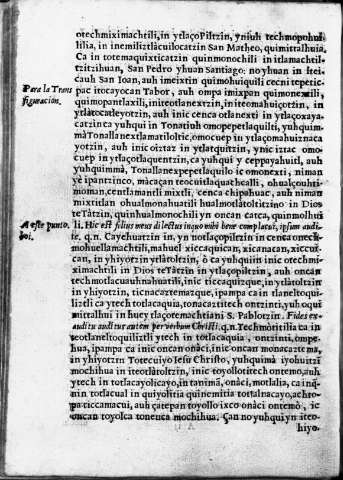 otechmiximachtili, in ytlaçoPiltzin, yniuh techmopohui
lilia, in inemiliztlacuilocatzin San Matheo, quimittalhuia.
Ca in totemaquixticatzin quinmonochili in itlamachtil-
tzitzihuan, San Pedro yhuan Santiago: no yhuan in itei-
cauh San Ioan, auh imeixtin quimohuiquili cecni tepetic-
pac itocayocan Tabor, auh ompa imixpan quimonexili,
quimopantlaxili, initeotlanextzin, initeomahuiçotzin, in
ytlatocatleyotzin, auh inic cenca otlanexti in ytlaçoxaya-
catzin ca yuhqui in Tonatiuh omopepetlaquilti, yuhquim-
mà Tonallanextlamatiloltic, omocuep in ytlaçomahuiznaca
yotzin, auh inic oiztaz in ytlatquitzin, ynic iztac omo-
cuep in ytlaçotlaquentzin, ca yuhqui y ceppayahuitl, auh
yuhquimmà, Tonallanexpepetlaquilo ic omonexti, niman
ye ipantzinco, micaçan teocuitlaquachcalli, ohualçouhti-
moman, centlamantli mixtli, cenca chipahuac, auh niman
mixtitlan ohualmonahuatili hualmotlàtoltitzino in Dios
teTàtzin, quinhualmonochili yn oncan catca, quinmolhui
li. Hic est filius meus dilectus in quo mihi bene complacui, ipsum audi-
te. q.n. Caycehuatzin in, yn notlaçopiltzin in cenca onech-
mohuellamachtili, mahuel xiccaquican, xicanacan, xiccui-
can, in yhiyotzin ytlàtoltzin, ò ca yuhquin inic otechmi-
ximachtili in Dios teTàtzin in ytlaçopiltzin, auh oncan
techmotlacuauhnahuatili, inic ticcaquizque, in ytlàtoltzin
in yhiyotzin, ticnacaztemazque, ipampa ca in tlaneltoqui-
liztli ca ytech totlacaquia, tonacaztitech ontzinti, yuh oqui
mittalhui in huey tlaçotemachtiani S. Pablotzin. Fides ex
auditu auditus autem per verbum Christi. q.n. Techmòtitilia ca in
teotlaneltoquiliztli ytech in totlacaquia, ontzinti, ompe-
hua, ipampa ca inic oncan onàci, inic oncan monacaztema,
in yhiyotzin Totecuiyo Iesu Christo, yuhquimà iyohuitzi
mochihua in iteotlàtoltzin, inic toyollotitech ontemo, auh
ytech in totlacayolicayo, in tanimà, onàci, motlalia, ca inq-
nin totlacual in quiyolitia quinemitia totlalnacayo, achto-
pa ticcamacui, auh çatepan toyollo ixco onàci ontemo, ic
oncan toyolca tonenca mochihua. Çan no yuhqui yn iteo-
hiyo.
Para la Trans
figuración.
A este punto
voi.